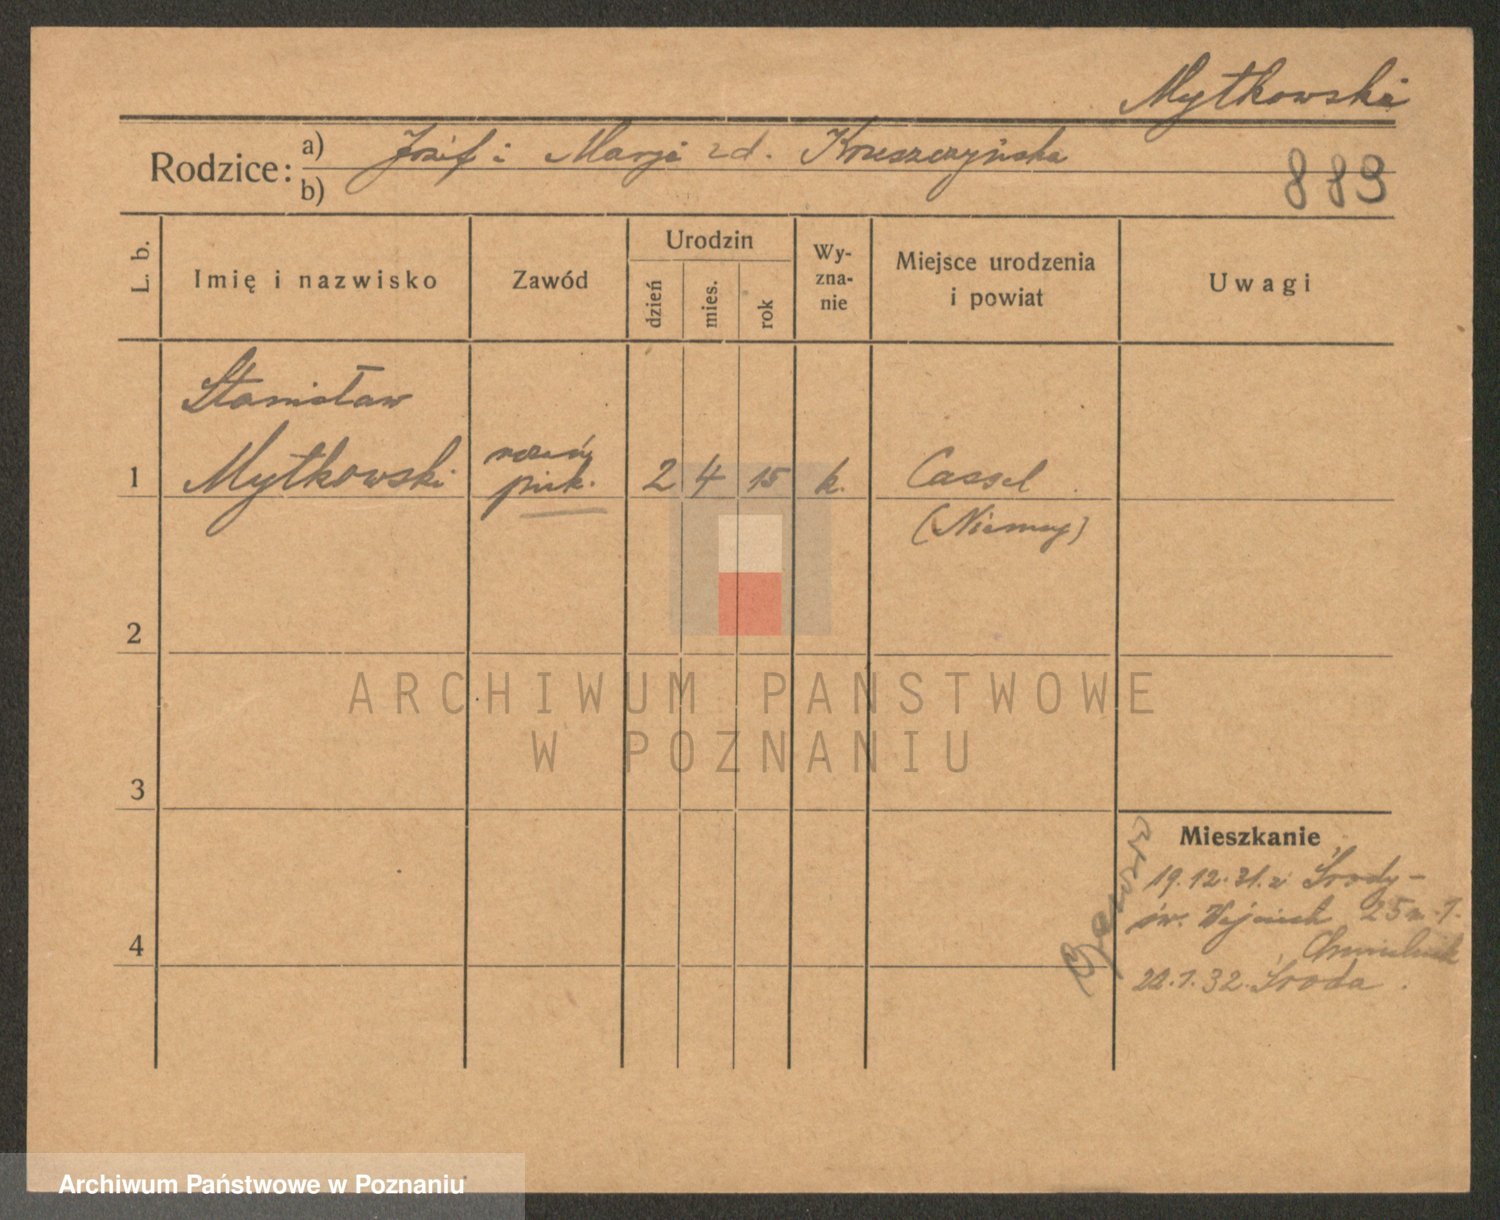 Mytkowski
Rodzice: a) Józef i Marja zd. Kruszczyńska
b)
889
L. b. Imię i nazwisko Zawód Urodzin dzień mies. rok Wy-
zna-
nie Miejsce urodzenia
i powiat Uwagi
Stanisław
1 Mytkowski uczeń
piek. 2 4 15 k. Cassel
(Niemcy)
2
ARCHIWUM PAŃSTWOWE
W POZNANIU
3
Mieszkanie
19.12.31. z Środy -
św. Wojciech 25 m. 7.
Chmielnik
4
22.1.32. Środa.
Archiwum Państwowe w Poznaniu